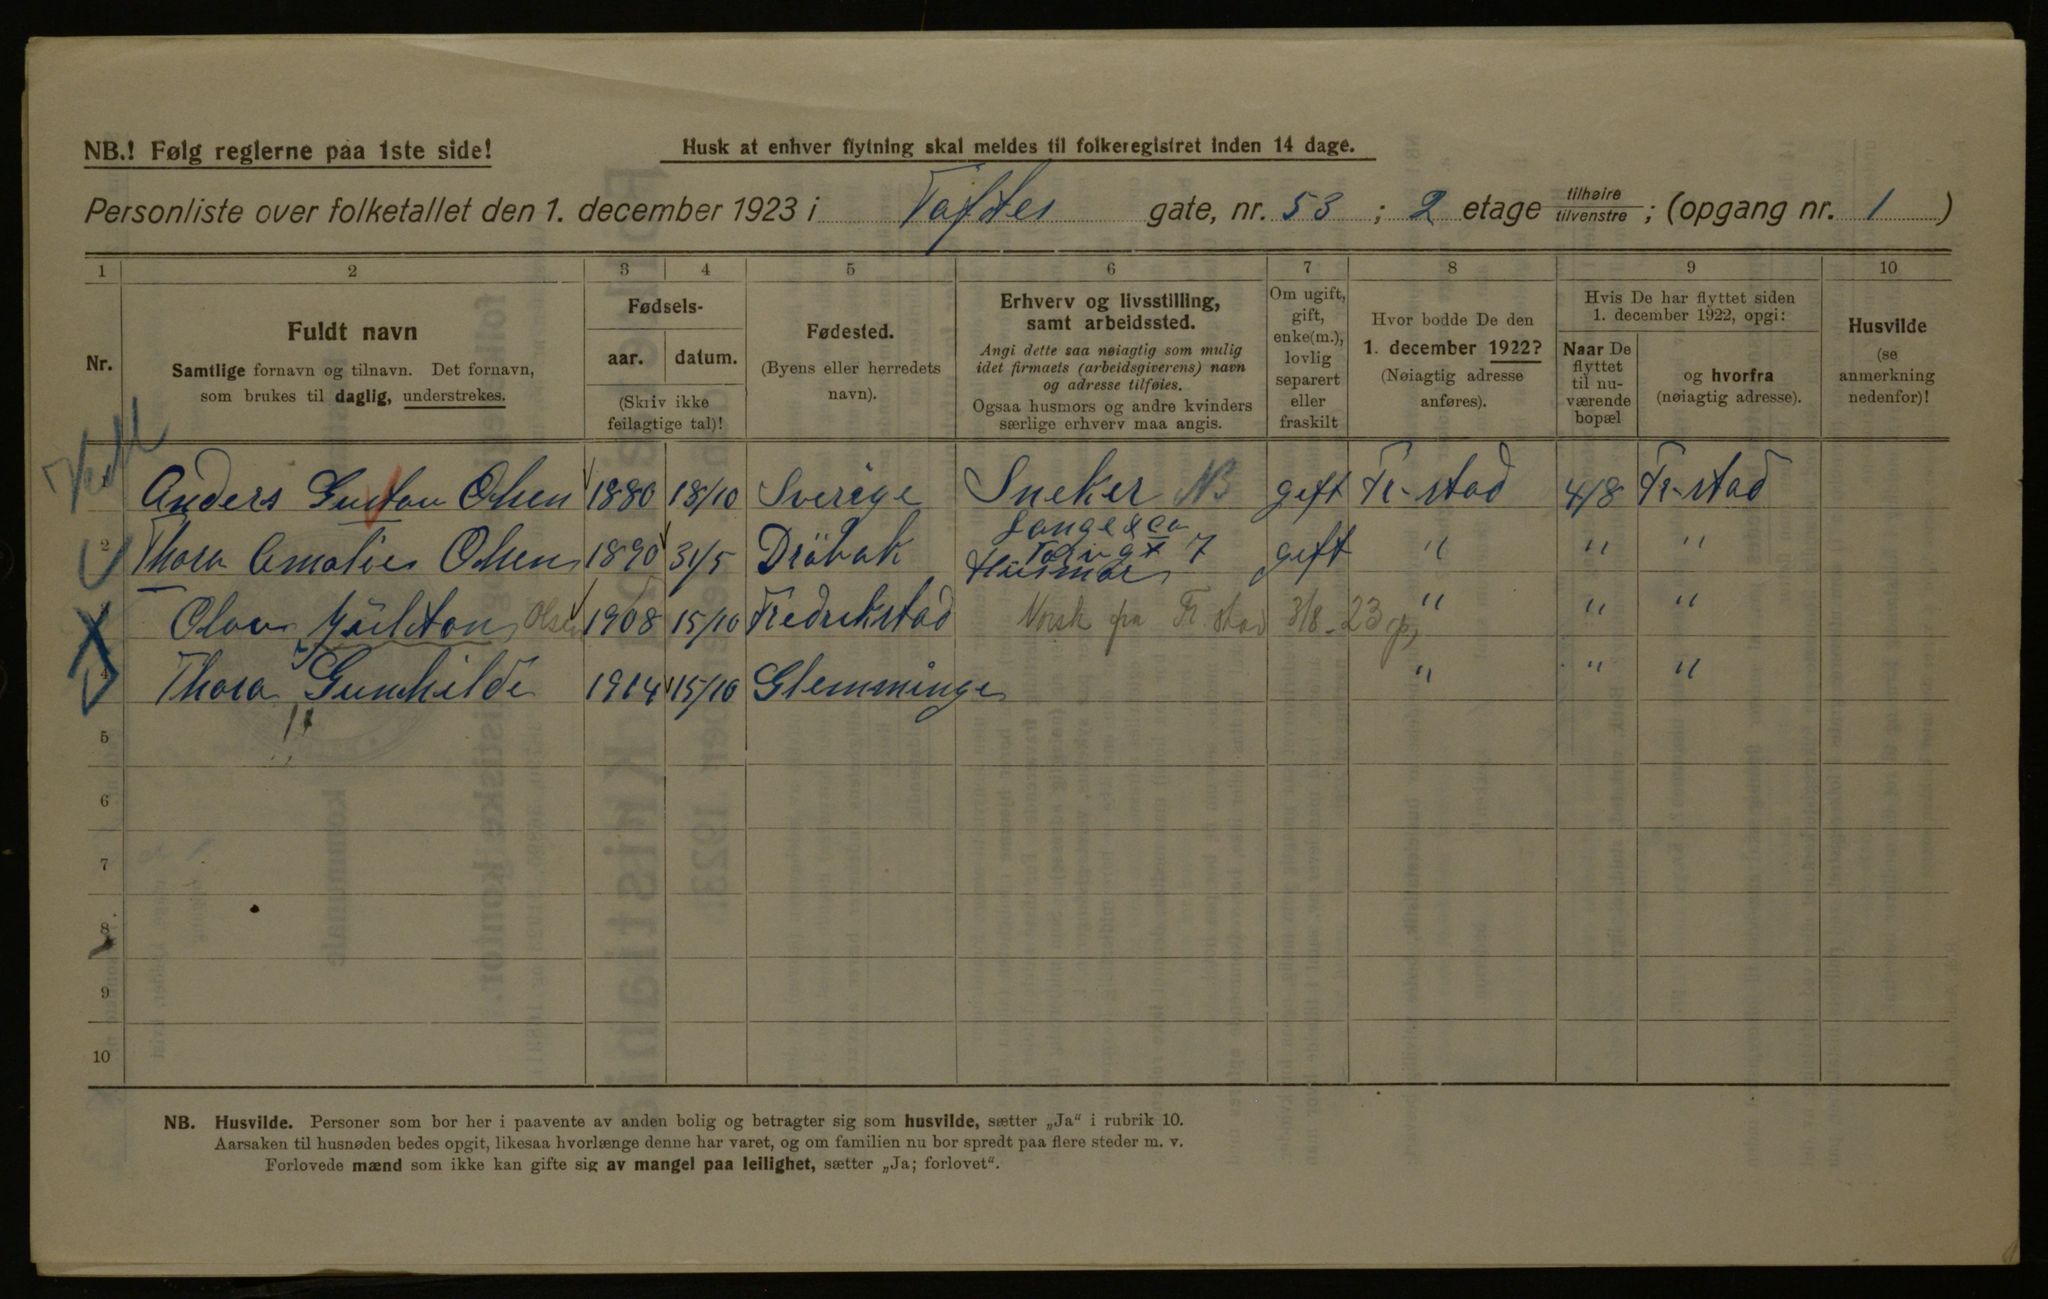 NB.! Følg reglerne paa 1ste side!
Husk at enhver flytning skal meldes til folkeregistret inden 14 dage.
Personliste over folketallet den 1. december 1923 i Toftes gate, nr. 53 ; 2 etage tilhøire / tilvenstre ; (opgang nr. 1 )
1 2 3 4 5 6 7 8 9 10
Nr.
Fuldt navn
Samtlige fornavn og tilnavn. Det fornavn,
som brukes til daglig, understrekes.
Fødsels-
aar. datum.
(Skriv ikke
feilagtige tal)!
Fødested.
(Byens eller herredets
navn).
Erhverv og livsstilling,
samt arbeidssted.
Angi dette saa nøiagtig som mulig
idet firmaets (arbeidsgiverens) navn
og adresse tilføies.
Ogsaa husmors og andre kvinders
særlige erhverv maa angis.
Om ugift,
gift,
enke(m.),
lovlig
separert
eller
fraskilt
Hvor bodde De den
1. december 1922?
(Nøiagtig adresse
anføres).
Hvis De har flyttet siden
1. december 1922, opgi:
Naar De
flyttet
til nu-
værende
bopæl
og hvorfra
(nøiagtig adresse).
Husvilde
(se
anmerkning
nedenfor)!
Anders Gustav Olsen 1880 18/10 Sverige Sneker NB gift Fr-stad 4/8 Fr-stad
Lange & Co
Torvgt 7
2 Thora Amalie Olsen 1890 31/5 Dröbak Husmor gift " " "
Olav Olsen 1908 15/10 Fredrikstad Norsk fra Fr.stad 3/8-23 " " "
4 Thora Gunhilde 1914 15/10 Glemminge " " "
5
6
7
8
9
10
NB. Husvilde. Personer som bor her i paavente av anden bolig og betragter sig som husvilde, sætter „Ja“ i rubrik 10.
Aarsaken til husnøden bedes opgit, likesaa hvorlænge denne har varet, og om familien nu bor spredt paa flere steder m. v.
Forlovede mænd som ikke kan gifte sig av mangel paa leilighet, sætter „Ja; forlovet“.